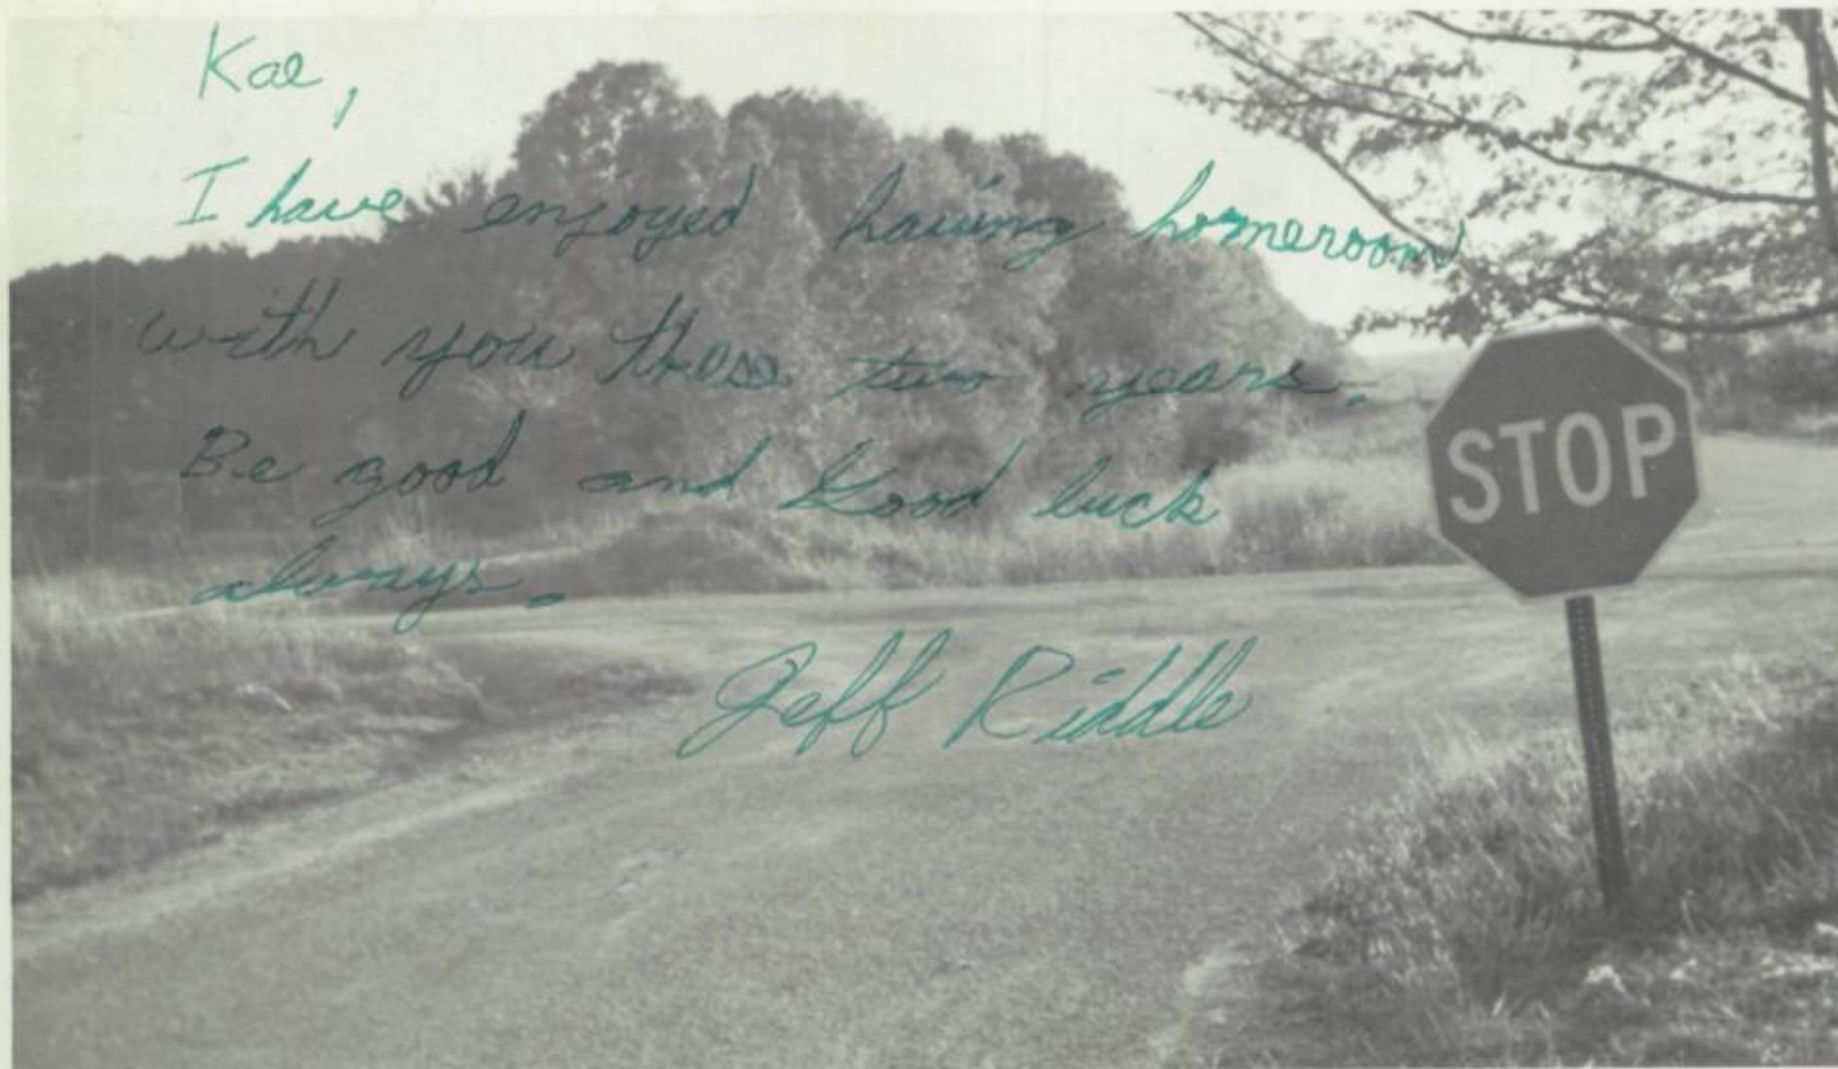 Kae,
I have enjoyed having homeroom
with you these two years.
Be good and Good luck
always.
Jeff Riddle
STOP